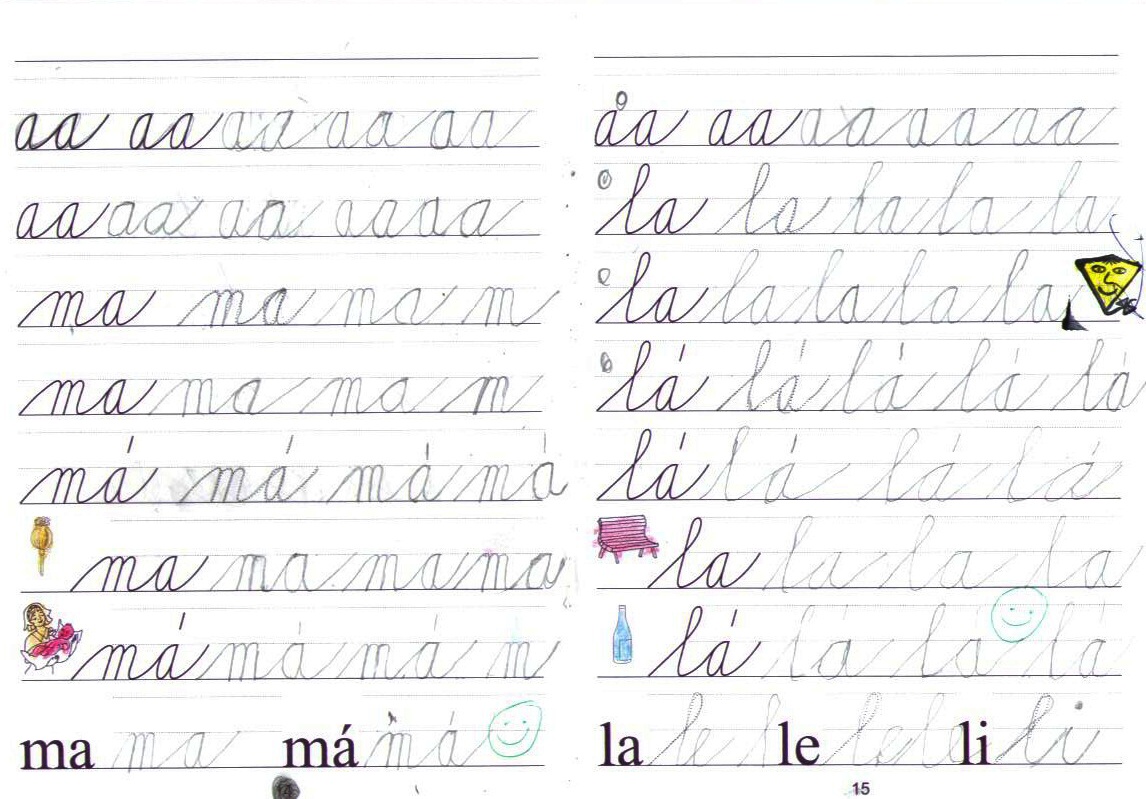 aa aa aa aa aa
aa aa aa aa aa
ma ma ma m
ma ma ma m
má má má má
ma ma ma ma
má má má m
ma ma má má
14
aa aa aa aa aa
la la la la la
la la la la la
lá lá lá lá lá
lá lá lá lá
la la la la
lá lá lá lá
la le l le le le li li
15